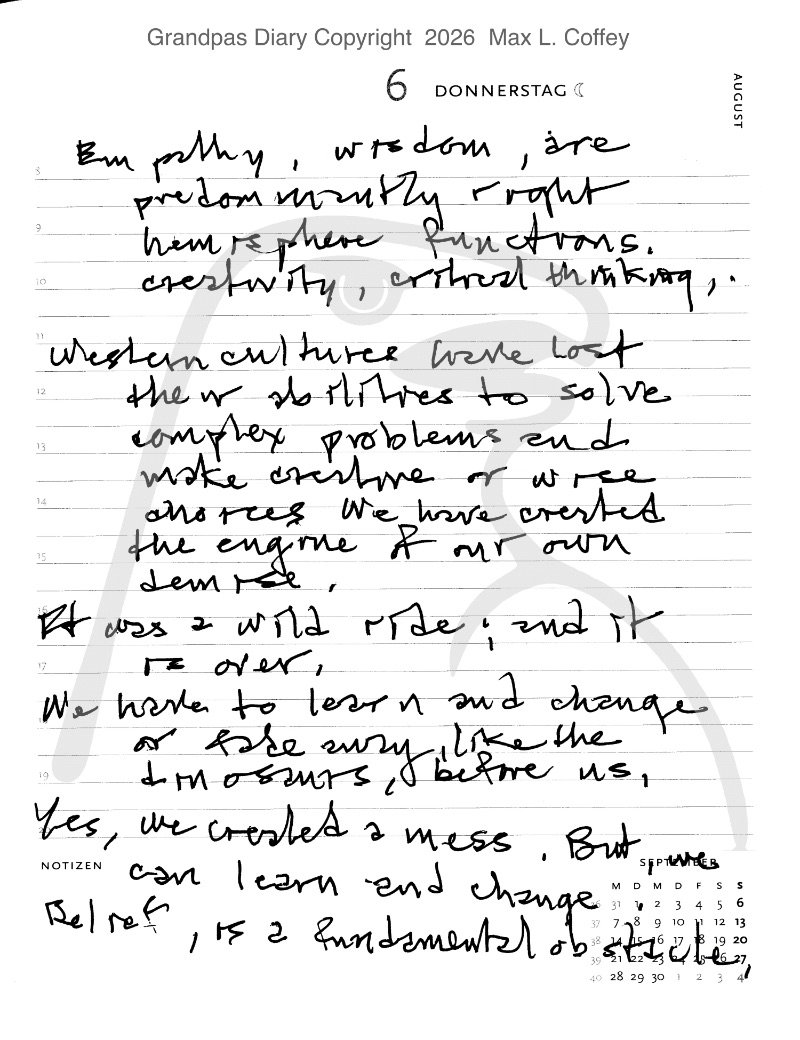 Grandpas Diary Copyright 2026 Max L. Coffey
6 DONNERSTAG
AUGUST
Empathy, wisdom, are
predominantly right
hemisphere functions.
creativity, critical thinking,.
Western cultures have lost
their abilities to solve
complex problems and
make creative or wise
choices We have created
the engine of our own
demise.
It was a wild ride; and it
is over,
We have to learn and change
or fade away, like the
dinosaurs, before us,
Yes, we created a mess. But, we
can learn and change,
Belief, is a fundamental obstacle,
8
9
10
11
12
13
14
15
16
17
19
NOTIZEN
SEPTEMBER
M D M D F S S
36 31 1 2 3 4 5 6
37 7 8 9 10 11 12 13
38 14 15 16 17 18 19 20
39 21 22 23 24 25 26 27
40 28 29 30 1 2 3 4